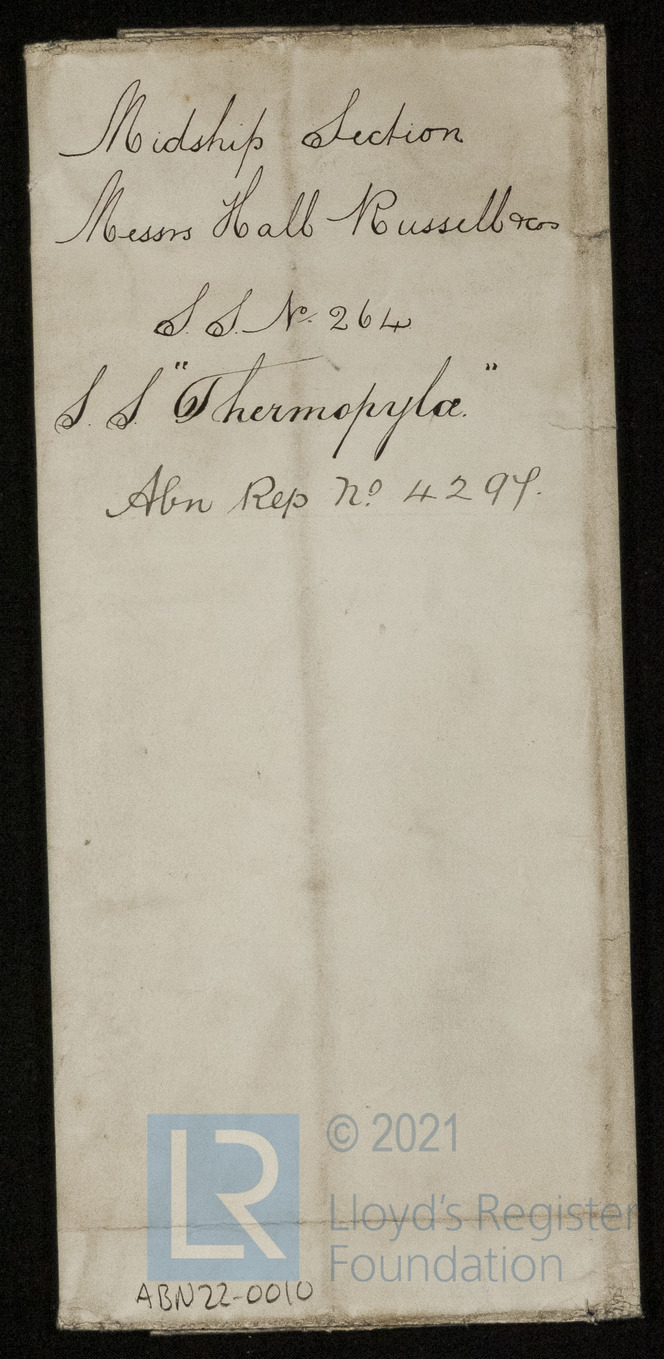 Midship Section
Messrs Hall Russell & Cos
S.S. No. 264
S.S. "Thermopylæ."
Abn Rep No 4297.
LR
© 2021
Lloyd's Register
Foundation
ABN22-0010